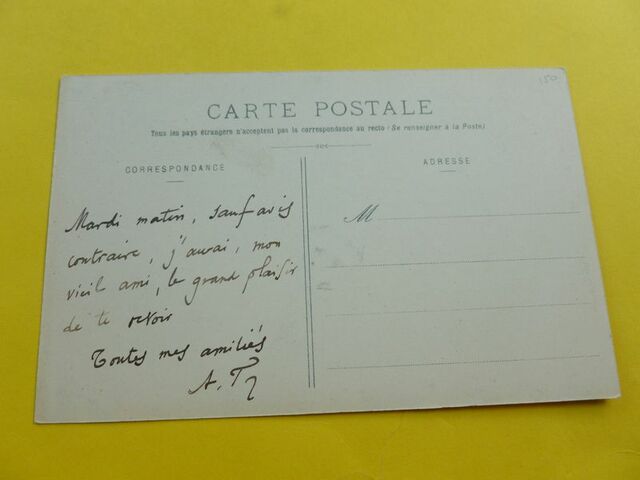 150
CARTE POSTALE
Tous les pays étrangers n'acceptent pas la correspondance au recto (Se renseigner à la Poste)
CORRESPONDANCE
Mardi matin, sauf avis
contraire, j'aurai, mon
vieil ami, le grand plaisir
de te revoir
Toutes mes amitiés
A.T
ADRESSE
M